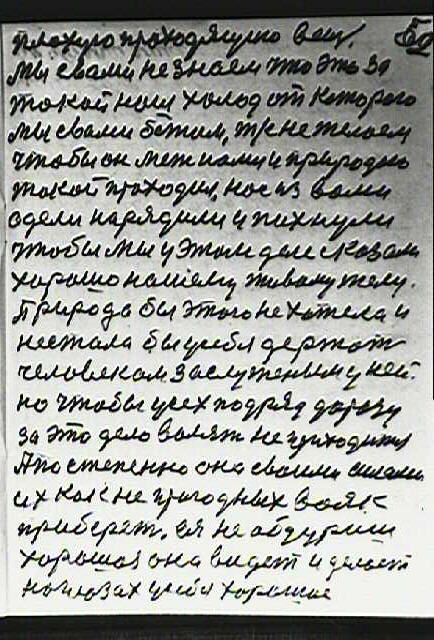 плохую проходящую вещ. 50
Мы свами не знаем што это за
такой наш холод от которого
Мы свами бежим, тк не желаем
чтобы он меж нами и природно
такой проходил, нас из вами
одели нарядили и пихнули
чтобы мы у этом деле сказали
хорошо нашему живому телу.
Природа бы этого не хотела и
нестала бы усебя держать
человеком заслуженым у ней.
но чтобы усех подряд
за это дело валять не приходится
А постепенно она своими силами
их как не пригодных вояк
приберет. Ея не обдуриш
хорошоя она видет и делает
на глазах усебя хорошое